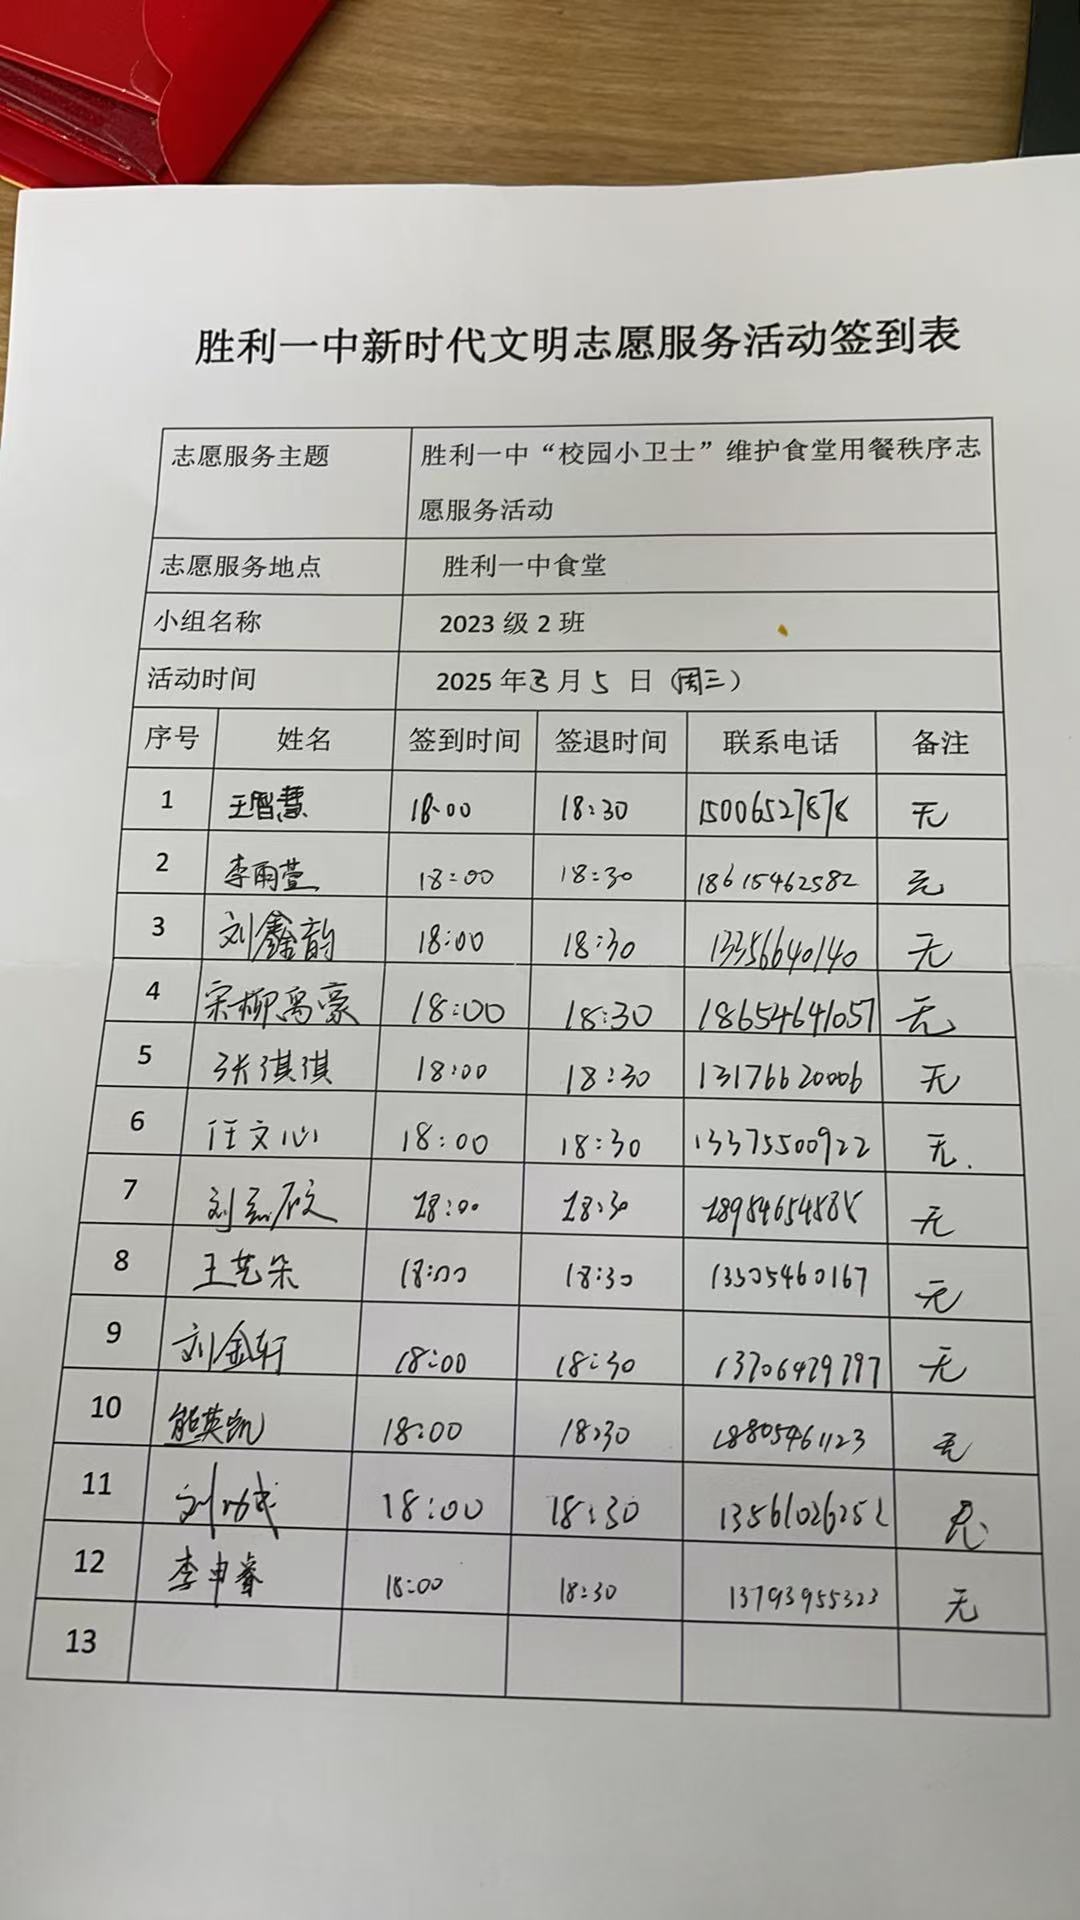 胜利一中新时代文明志愿服务活动签到表
志愿服务主题 胜利一中“校园小卫士”维护食堂用餐秩序志
愿服务活动
志愿服务地点 胜利一中食堂
小组名称 2023 级 2 班
活动时间 2025 年 3 月 5 日 (周三)
序号 姓名 签到时间 签退时间 联系电话 备注
1 王智慧 18:00 18:30 15006527878 无
2 李雨萱 18:00 18:30 18615462582 无
3 刘鑫韵 18:00 18:30 13356640140 无
4 宋柳禹豪 18:00 18:30 18654641057 无
5 张淇淇 18:00 18:30 13176620006 无
6 任文心 18:00 18:30 13375500922 无.
7 刘 18:00 18:30 无
8 王艺朵 18:00 18:30 13505460167 无
9 刘金轩 18:00 18:30 13706479797 无
10 熊英凯 18:00 18:30 18805461123 无
11 刘 18:00 18:30 13561026252 无
12 李申睿 18:00 18:30 13793955323 无
13